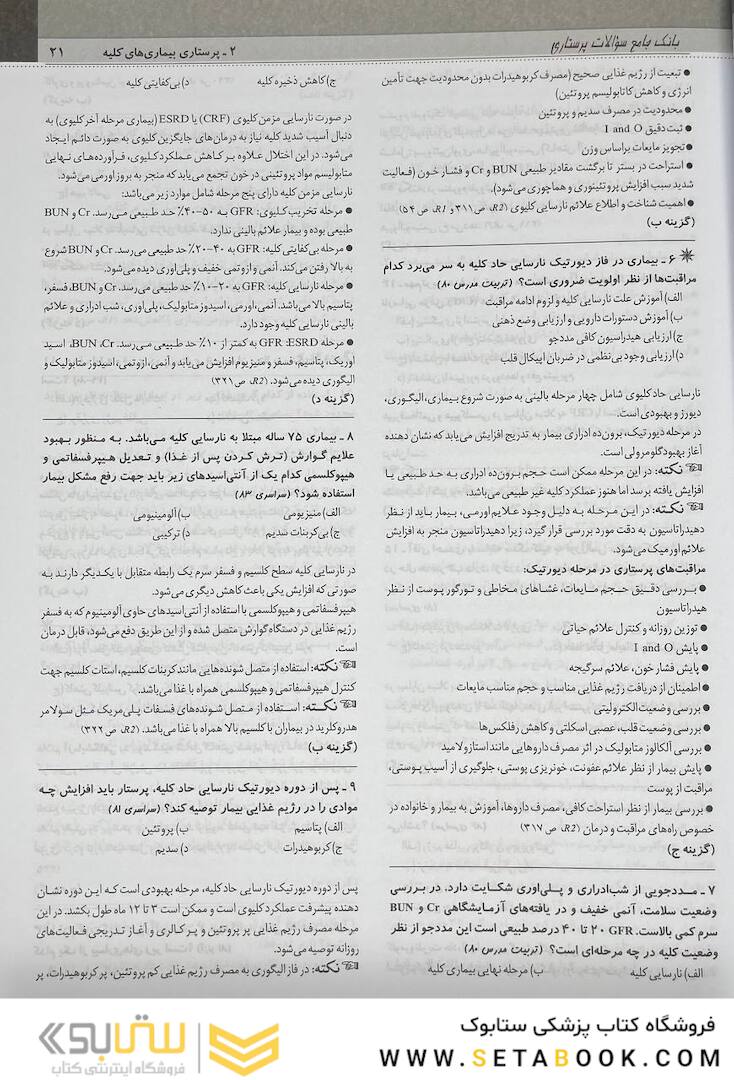 بانک جامع سؤالات پرستاری
۲ ـ پرستاری بیماری‌های کلیه
۲۱
● تبعیت از رژیم غذایی صحیح (مصرف کربوهیدرات بدون محدودیت جهت تأمین
انرژی و کاهش کاتابولیسم پروتئین)
● محدودیت در مصرف سدیم و پروتئین
● ثبت دقیق I and O
● تجویز مایعات براساس وزن
● استراحت در بستر تا برگشت مقادیر طبیعی BUN و Cr و فشار خون (فعالیت
شدید سبب افزایش پروتئینوری و هماچوری می‌شود).
● اهمیت شناخت و اطلاع علائم نارسایی کلیوی (R2، ص ۳۱۱ و R1، ص ۵۴)
(گزینه ب)
۶ ـ بیماری در فاز دیورتیک نارسایی حاد کلیه به سر می‌برد کدام
مراقبت‌ها از نظر اولویت ضروری است؟ (تربیت مدرس ۸۰)
الف) آموزش علت نارسایی کلیه و لزوم ادامه مراقبت
ب) آموزش دستورات دارویی و ارزیابی وضع ذهنی
ج) ارزیابی هیدراسیون کافی مددجو
د) ارزیابی وجود بی‌نظمی در ضربان اپیکال قلب
نارسایی حاد کلیوی شامل چهار مرحله بالینی به صورت شروع بیماری، الیگوری،
دیورز و بهبودی است.
در مرحله دیورتیک، برون‌ده ادراری بیمار به تدریج افزایش می‌یابد که نشان دهنده
آغاز بهبود گلومرولی است.
نکته: در این مرحله ممکن است حجم برون‌ده ادراری به حد طبیعی یا
افزایش یافته برسد اما هنوز عملکرد کلیه غیر طبیعی می‌باشد.
نکته: در این مرحله به دلیل وجود علایم اورمی، بیمار باید از نظر
دهیدراتاسیون به دقت مورد بررسی قرار گیرد، زیرا دهیدراتاسیون منجر به افزایش
علائم اورمیک می‌شود.
مراقبت‌های پرستاری در مرحله دیورتیک:
● بررسی دقیق حجم مایعات، غشاهای مخاطی و تورگور پوست از نظر
هیدراتاسیون
● توزین روزانه و کنترل علائم حیاتی
● پایش I and O
● پایش فشار خون، علائم سرگیجه
● اطمینان از دریافت رژیم غذایی مناسب و حجم مناسب مایعات
● بررسی وضعیت الکترولیتی
● بررسی وضعیت قلب، عصبی اسکلتی و کاهش رفلکس‌ها
● بررسی آلکالوز متابولیک در اثر مصرف داروهایی مانند استازولامید
● پایش بیمار از نظر علائم عفونت، خونریزی پوستی، جلوگیری از آسیب پوستی،
مراقبت از پوست
● بررسی بیمار از نظر استراحت کافی، مصرف داروها، آموزش به بیمار و خانواده در
خصوص راه‌های مراقبت و درمان (R2، ص ۳۱۷)
(گزینه ج)
۷ ـ مددجویی از شب‌ادراری و پلی‌اوری شکایت دارد. در بررسی
وضعیت سلامت، آنمی خفیف و در یافته‌های آزمایشگاهی Cr و BUN
سرم کمی بالاست. GFR ۲۰ تا ۴۰ درصد طبیعی است این مددجو از نظر
وضعیت کلیه در چه مرحله‌ای است؟ (تربیت مدرس ۸۰)
الف) نارسایی کلیه ب) مرحله نهایی بیماری کلیه
ج) کاهش ذخیره کلیه د) بی‌کفایتی کلیه
در صورت نارسایی مزمن کلیوی (CRF) یا ESRD (بیماری مرحله آخر کلیوی) به
دنبال آسیب شدید کلیه نیاز به درمان‌های جایگزین کلیوی به صورت دائم ایجاد
می‌شود. در این اختلال علاوه بر کاهش عملکرد کلیوی، فرآورده‌های نهایی
متابولیسم مواد پروتئینی در خون تجمع می‌یابد که منجر به بروز اورمی می‌شود.
نارسایی مزمن کلیه دارای پنج مرحله شامل موارد زیر می‌باشد:
● مرحله تخریب کلیوی: GFR به ۵۰-۴۰٪ حد طبیعی می‌رسد. Cr و BUN
طبیعی بوده و بیمار علائم بالینی ندارد.
● مرحله بی‌کفایتی کلیه: GFR به ۴۰-۲۰٪ حد طبیعی می‌رسد. Cr و BUN شروع
به بالا رفتن می‌کند. آنمی و ازوتمی خفیف و پلی‌اوری دیده می‌شود.
● مرحله نارسایی کلیه: GFR به ۲۰-۱۰٪ حد طبیعی می‌رسد. Cr و BUN، فسفر،
پتاسیم بالا می‌باشد. آنمی، اورمی، اسیدوز متابولیک، پلی‌اوری، شب ادراری و علائم
بالینی نارسایی کلیه وجود دارد.
● مرحله GFR :ESRD به کمتر از ۱۰٪ حد طبیعی می‌رسد. BUN، Cr، اسید
اوریک، پتاسیم، فسفر و منیزیوم افزایش می‌یابد و آنمی، ازوتمی، اسیدوز متابولیک و
الیگوری دیده می‌شود. (R2، ص ۳۲۱)
(گزینه د)
۸ ـ بیماری ۷۵ ساله مبتلا به نارسایی کلیه می‌باشد. به منظور بهبود
علایم گوارش (ترش کردن پس از غذا) و تعدیل هیپرفسفاتمی و
هیپوکلسمی کدام یک از آنتی‌اسیدهای زیر باید جهت رفع مشکل بیمار
استفاده شود؟ (سراسری ۸۳)
الف) منیزیومی ب) آلومینیومی
ج) بی‌کربنات سدیم د) ترکیبی
در نارسایی کلیه سطح کلسیم و فسفر سرم یک رابطه متقابل با یکدیگر دارند به
صورتی که افزایش یکی باعث کاهش دیگری می‌شود.
هیپرفسفاتمی و هیپوکلسمی با استفاده از آنتی‌اسیدهای حاوی آلومینیوم که به فسفر
رژیم غذایی در دستگاه گوارش متصل شده و از این طریق دفع می‌شود، قابل درمان
است.
نکته: استفاده از متصل شونده‌هایی مانند کربنات کلسیم، استات کلسیم جهت
کنترل هیپرفسفاتمی و هیپوکلسمی همراه با غذا می‌باشد.
نکته: استفاده از متصل شونده‌های فسفات پلی‌مریک مثل سولامر
هدروکلرید در بیماران با کلسیم بالا همراه با غذا می‌باشد. (R2، ص ۳۲۲)
(گزینه ب)
۹ ـ پس از دوره دیورتیک نارسایی حاد کلیه، پرستار باید افزایش چه
موادی را در رژیم غذایی بیمار توصیه کند؟ (سراسری ۸۱)
الف) پتاسیم ب) پروتئین
ج) کربوهیدرات د) سدیم
پس از دوره دیورتیک نارسایی حاد کلیه، مرحله بهبودی است که این دوره نشان
دهنده پیشرفت عملکرد کلیوی است و ممکن است ۳ تا ۱۲ ماه طول بکشد. در این
مرحله مصرف رژیم غذایی پر پروتئین و پر کالری و آغاز تدریجی فعالیت‌های
روزانه توصیه می‌شود.
نکته: در فاز الیگوری به مصرف رژیم غذایی کم پروتئین، پر کربوهیدرات، پر
فروشگاه کتاب پزشکی ستابوک
WWW.SETABOOK.COM
ستابوک
فروشگاه اینترنتی کتاب